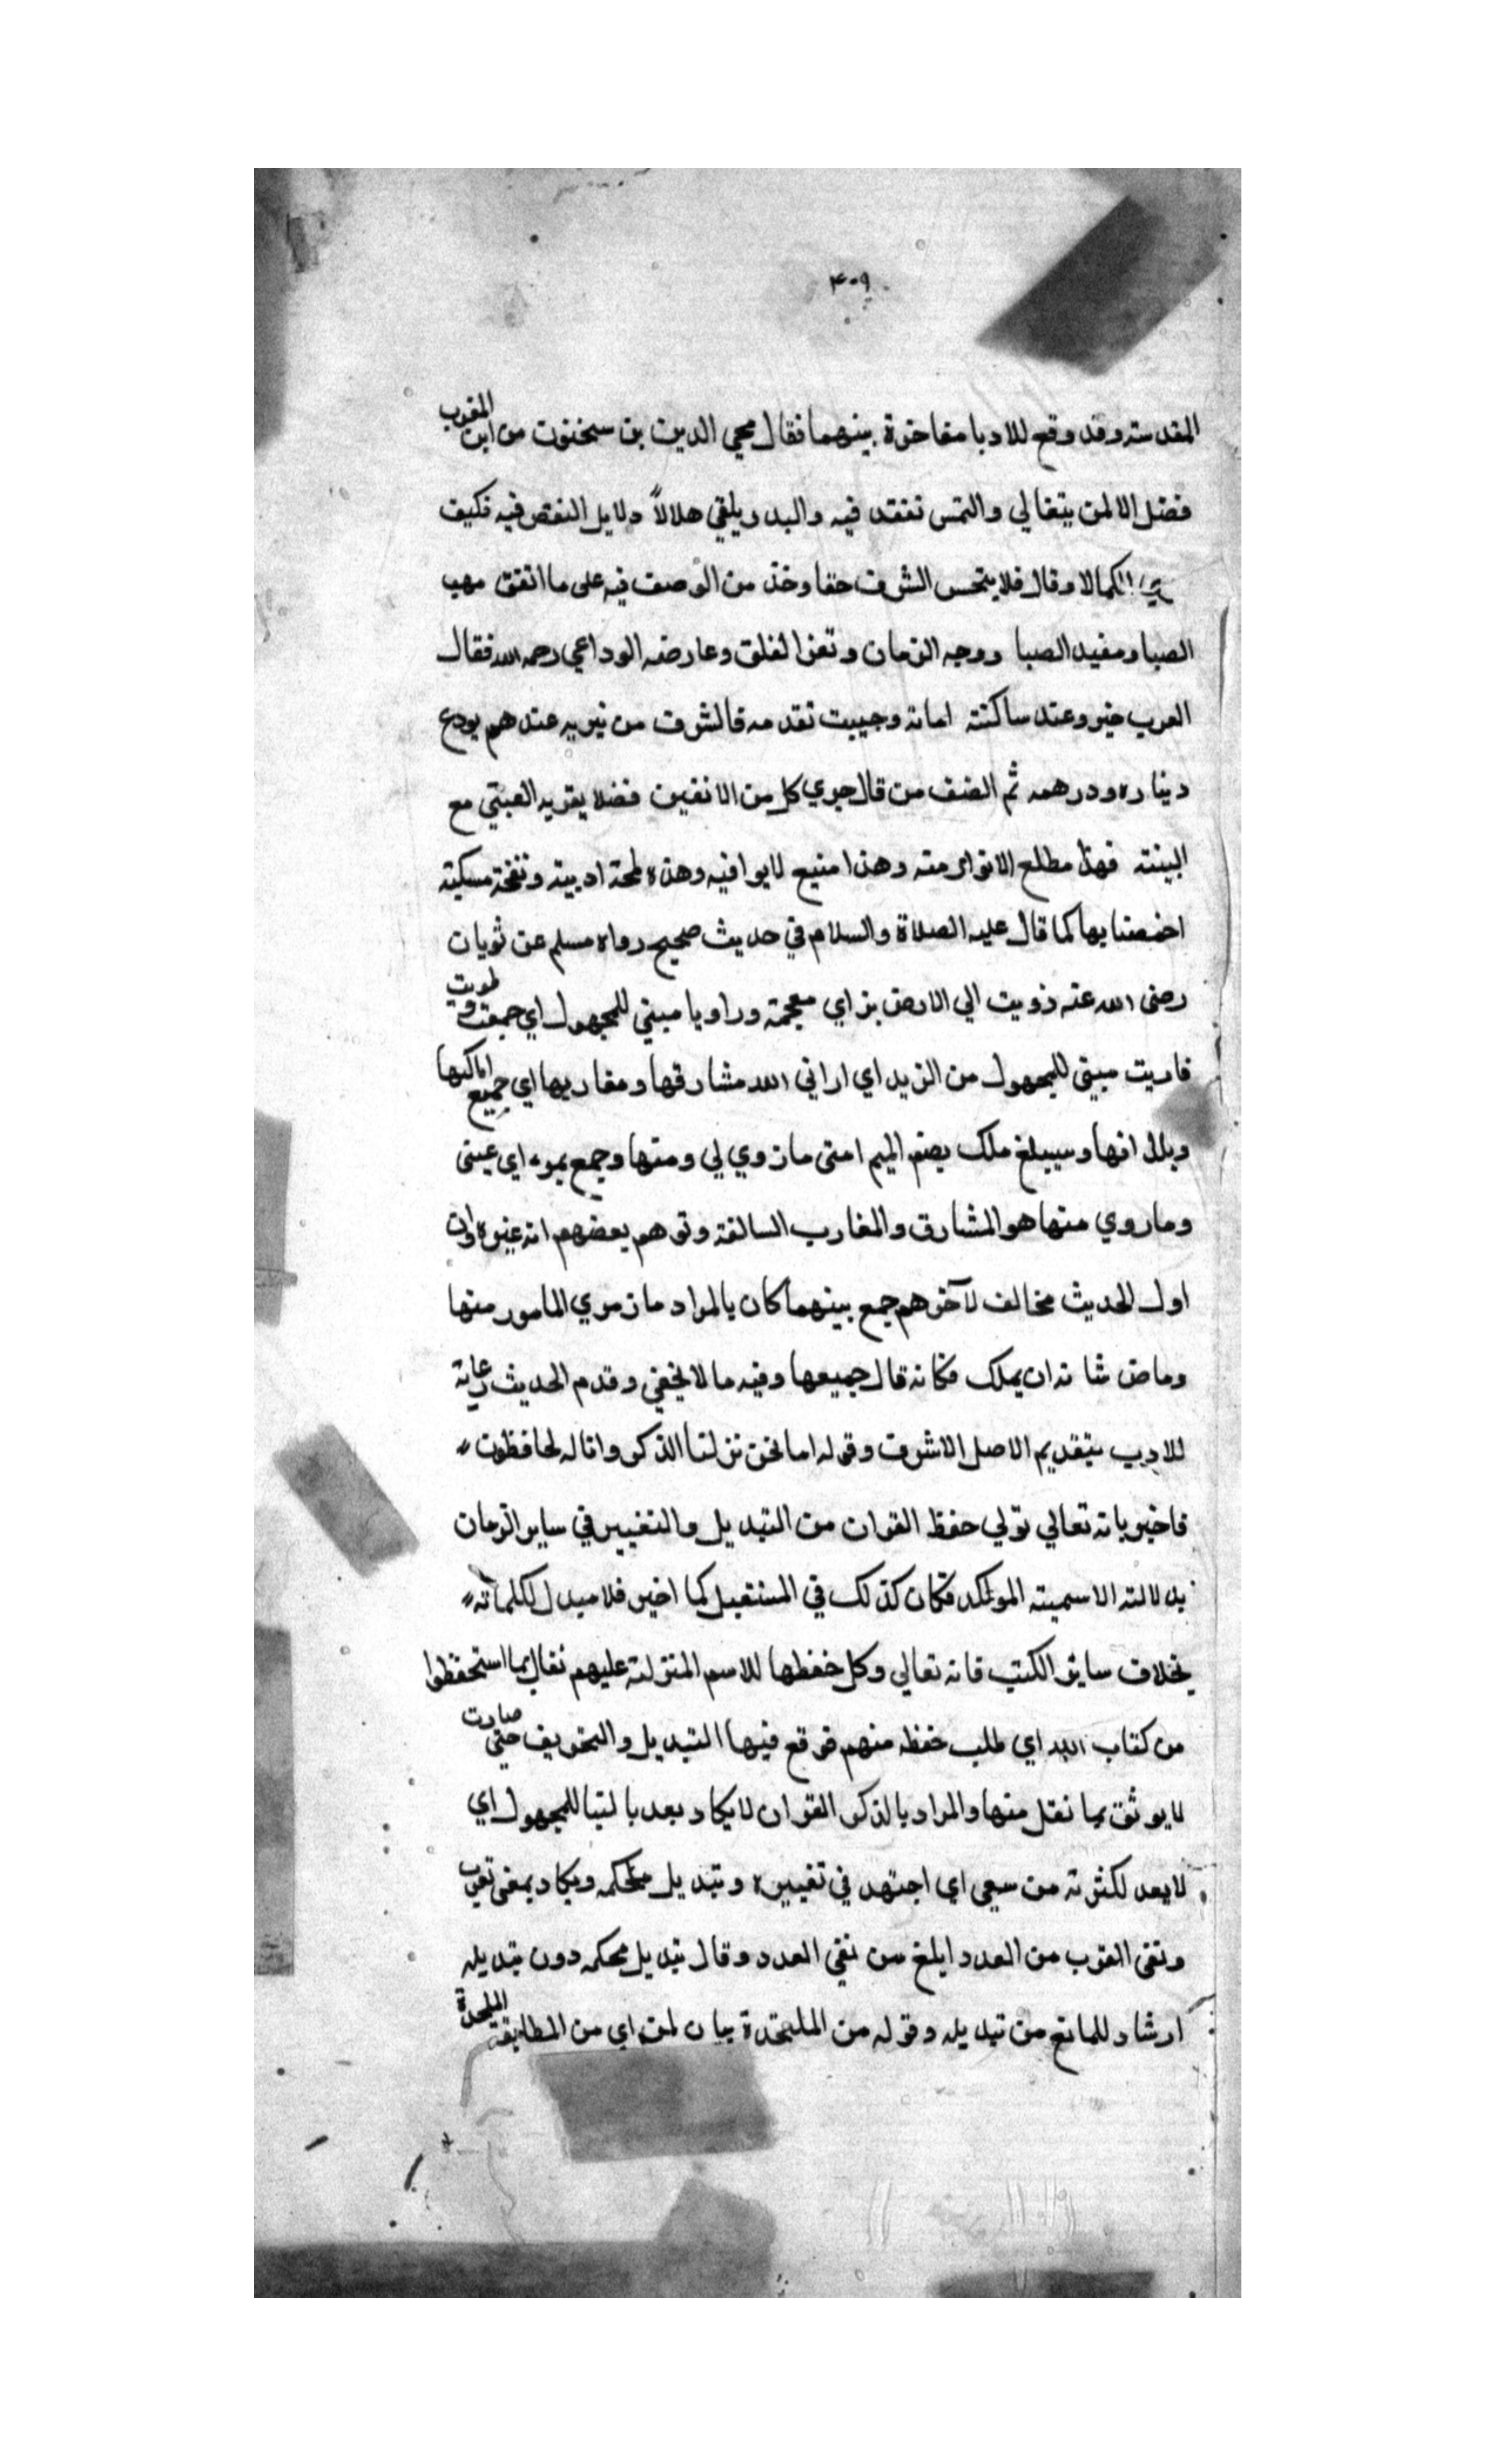 ٤٠٩
المقدسته وقد وقع للادبا مفاخرة بينهما فقال محي الدين بن سحنون من اين المغرب
فضل الا لمن يتغالي والشمس تفتقد فيه والبدر يلقي هلالاً دلايل النقص فيه فكيف
الكمالا وقال فلا يتحسن الشرق حقا وخذ من الوصف فيه على ما اتفق مهب
الصبا ومفيد الصبا ووجه الزمان وتغر الفلق وعارضه الوداعي رحمه الله فقال
الغرب خير وعند ساكنته امانة وجيبت تقدمه فالشرق من نيريه عندهم يودع
ديناره ودرهمه ثم الصنف من قال حوي كل من الافقين فضلا يقربه الغبتي مع
البينته فهذا مطلع الانوار منه وهذا منبع لايوافيه وهذه لمحة ادبية ونفحة مسكية
اخصصنا بها كما قال عليه الصلاة والسلام في حديث صحيح رواه مسلم عن ثوبان
رضى الله عنه زويت الي الارض بزاي معجمة وراويا مبني للمجهول اي جمعت وطويت
فاريت مبيني للمجهول من الزيد اي اراني الله مشارقها ومغاربها اي جميع اماكنها
وبلدانها وسيبلغ ملك بضم الميم امتى مازوي لي ومنها وجمع يموء اي عيني
وماروي منها هو المشارق والمغارب السالفة وتوهم بعضهم انه غيره وان
اول الحديث مخالف لآخرهم جمع بينهما كان بالمراد مازوي المامور منها
وماض شانه ان يملك فكانه قال جميعها وفيه ما لا يخفي وقدم الحديث رعاية
للادب بتقديم الاصل الاشرف وقوله اما نحن نزلنا الذكر وانا له لحافظون
فاخبر بانه تعالي تولي حفظ القران من التبديل والتغيير في ساير الزمان
بدلالته الاسميته الموكد فكان كذلك في المستقبل كما اخبر فلا مبدل لكلماته
بخلاف ساير الكتب فانه تعالي وكل حفظها للاسم المنزلته عليهم نقال بما استحفظوا
من كتاب الله اي طلب حفظه منهم فوقع فيها التبديل والتحريف حتي صارت
لايوثق بما نقل منها والمراد بالذكر القران لايكاد بعد بالبنا للمجهول اي
لايعد لكثرته من سعى اي اجتهد في تغييره وتبديل محكمه ويكاد بمعنى تقرب
ونفى القرب من العدد ابلغ من نفي العدد وقال تبديل محكمه دون تبديله
ارشاد للمانع من تبديله وقوله من الملحدة بيان لمن اي من الطايفة الملحدة